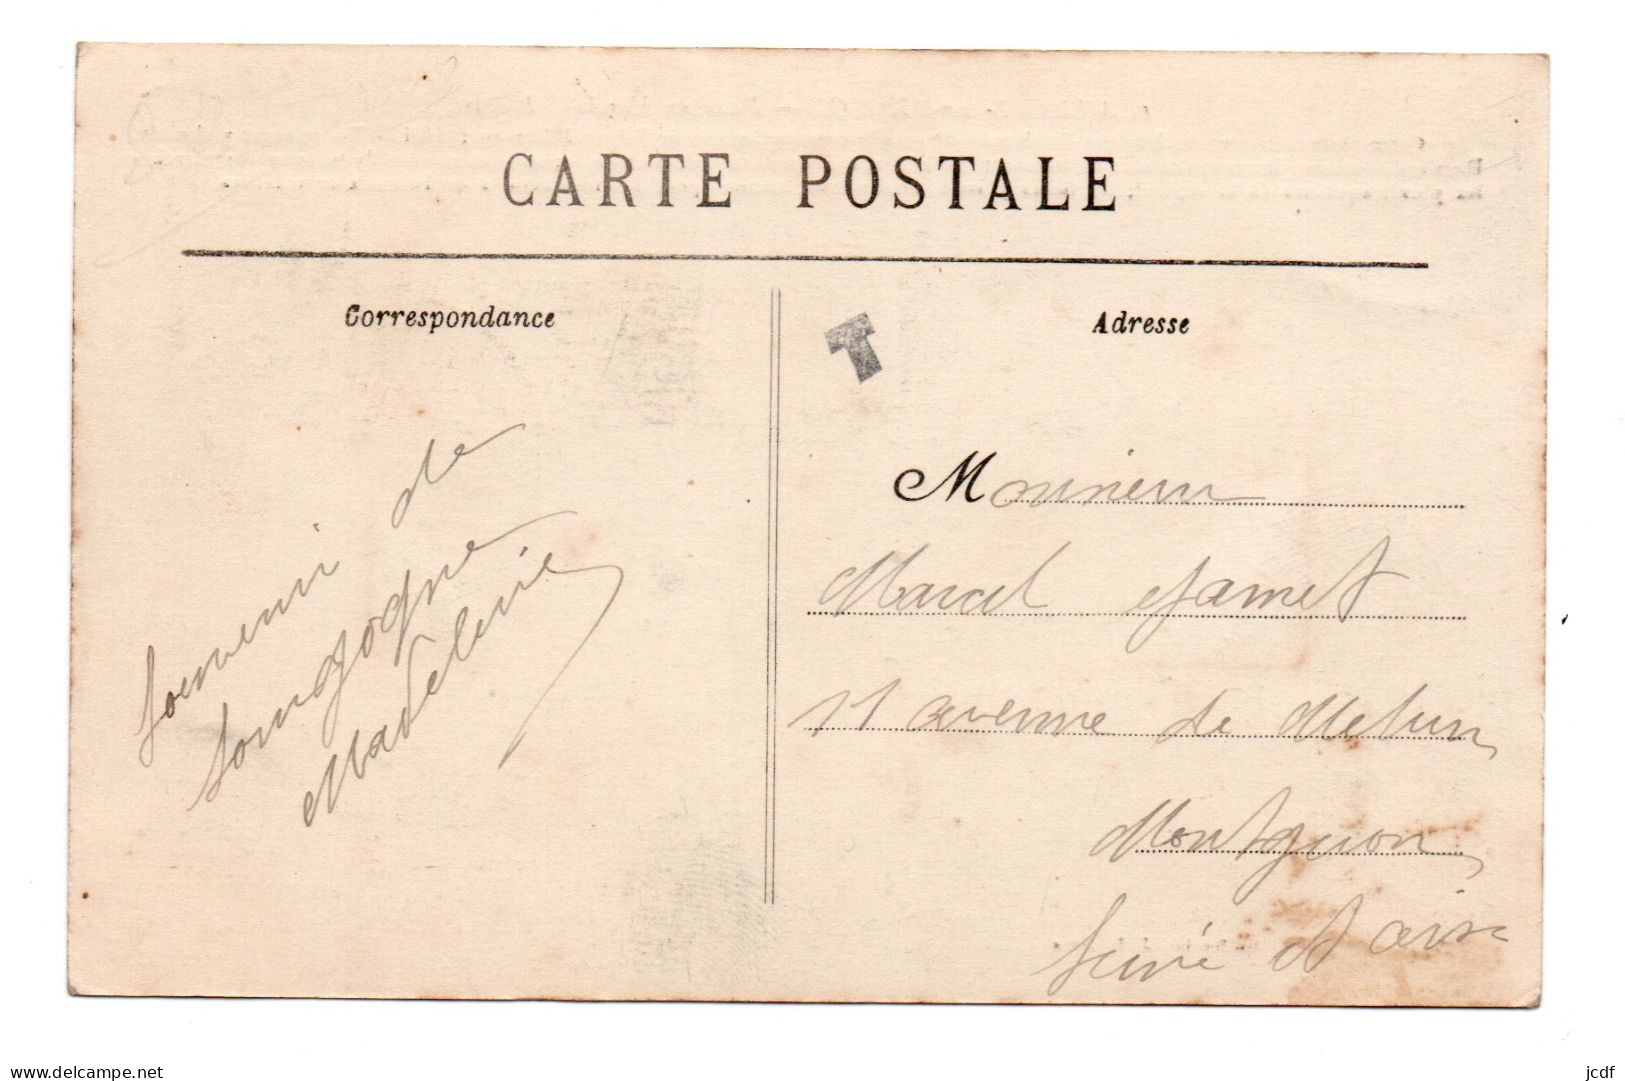 CARTE POSTALE
Correspondance
Adresse
T
Souvenir de
Songogne
Madeleine
Monsieur
Marcel Jamet
11 avenue de Melun
Montgeron
Seine et oise
www.delcampe.net
jcdf